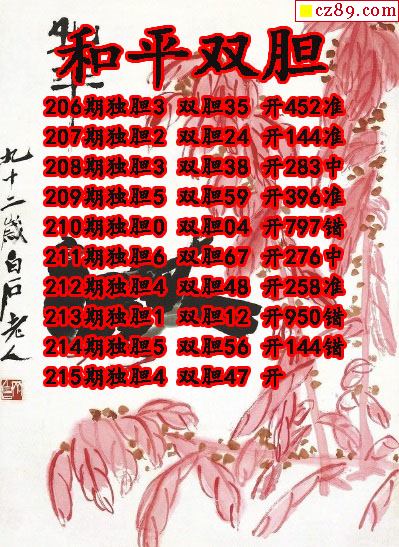 cz89.com
和平双胆
206期独胆3 双胆35 开452准
207期独胆2 双胆24 开144准
208期独胆3 双胆38 开283中
209期独胆5 双胆59 开396准
210期独胆0 双胆04 开797错
211期独胆6 双胆67 开276中
212期独胆4 双胆48 开258准
213期独胆1 双胆12 开950错
214期独胆5 双胆56 开144错
215期独胆4 双胆47 开
九十二岁白石老人